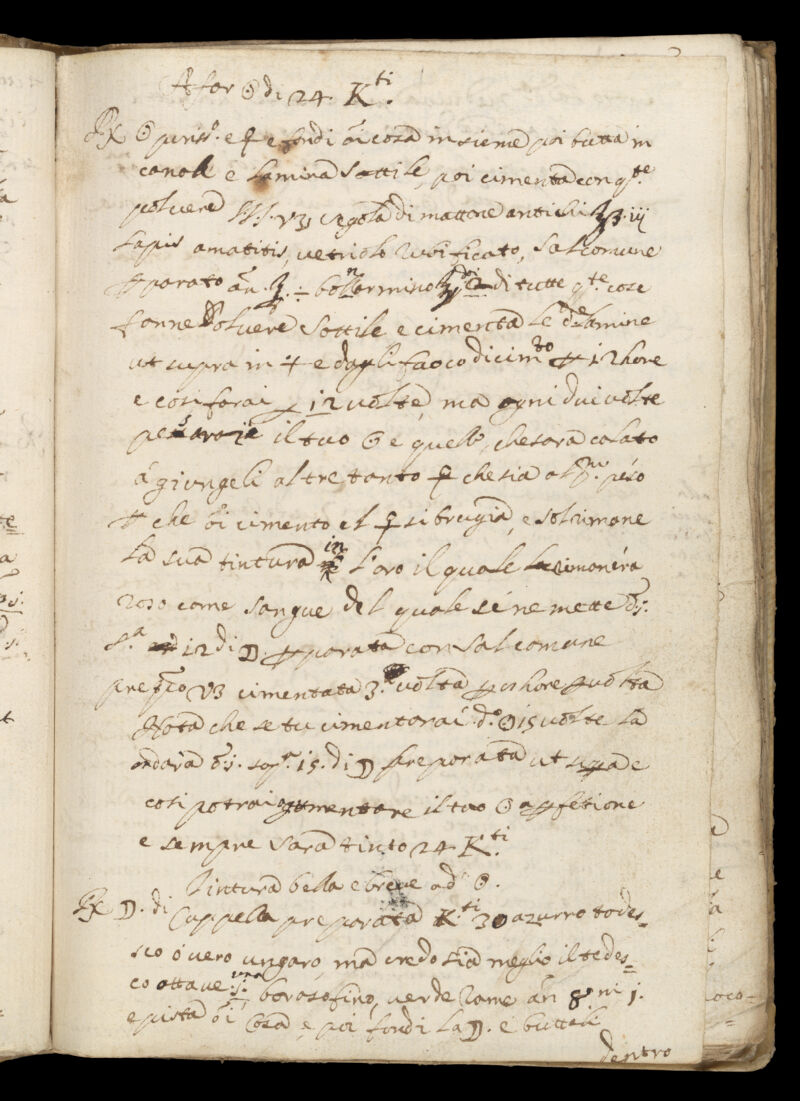 A far ☉ di 24. K.ti
Rx ☉ puriss.o e ♀ e fondi õi cosa insieme poi butta in
canale e lamina sottile, poi cimenta con q.te
polvere regola di mattone antichi ℥ iij
Lapis amatitis, vetriolo rubificato, sal comune
pparato an. ℥. bolo armino di tutte q.te cose
fanne polvere sottile e cimenta le d.e lamine
ut supra in e dagli fuoco di cim.to p 12 hore
e così farai p 12 volte, ma ogni dui volte
pesarai il tuo ☉ e quello, che sarà calato
à giungeli altre tanto ♀ che sia al p.mo peso
p che õi cimento el ♀ si brugia, e sol rimane
la sua tintura in l'oro il quale rimanera
roso come sangue del quale sé ne mette
s.a 12 di ☽ pparata con sal comune
cimentata 3. volta p hore p volta
Nota che se tu cimentarai d.o ☉ 15 volte la
andara sop.a 15. di ☽ preparata ut supra e
così potrai augumentare il tuo ☉ a pfetione
e sempre sara tinto 24. K.ti
Tintura bella e breve ad ☉.
Rx ☽. di Cappella preparata K.ti 30 azurro todes-
sco ó vero ungaro, ma credo sia meglio il tedes-
co ottave una j. boraso fino, verde rame an j.
e pista õi cosa e poi fondi la ☽. e buttali
dentro